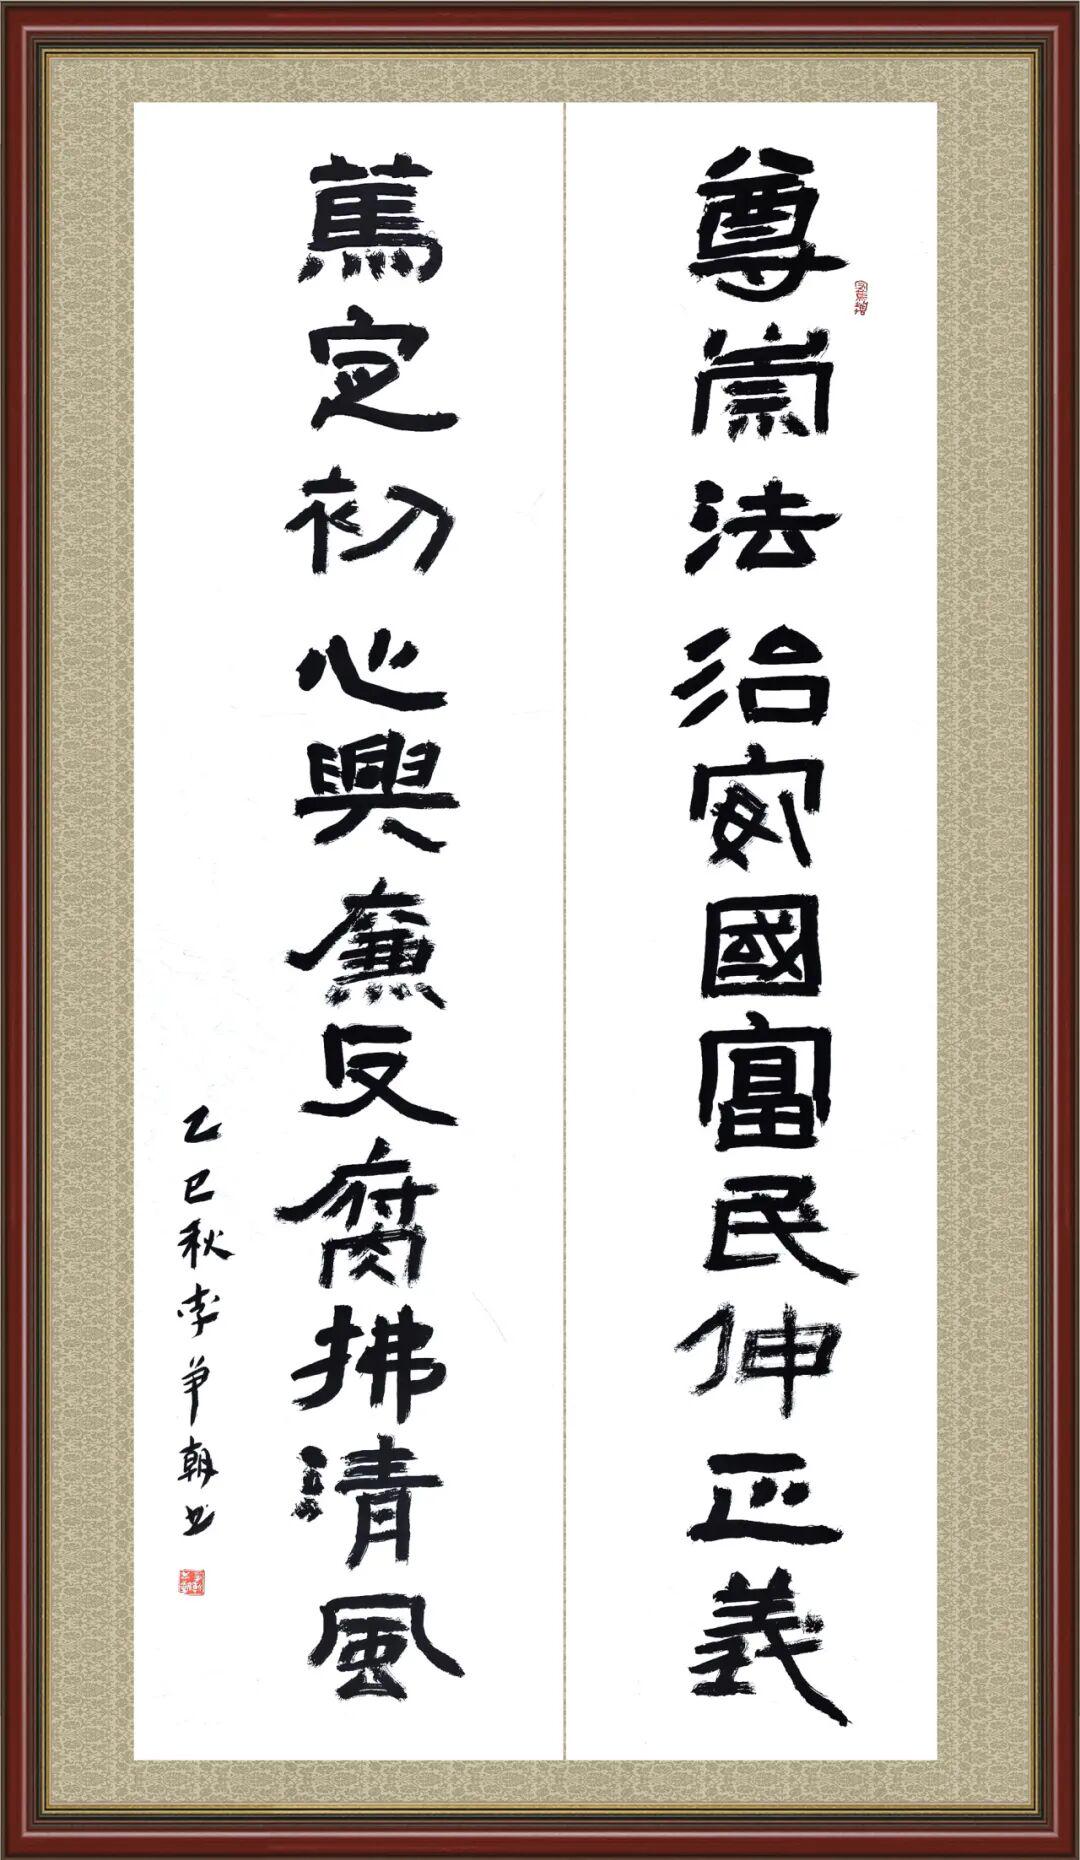 尊崇法治安國富民伸正義
篤定初心興廉反腐拂清風
乙巳秋李爭朝书